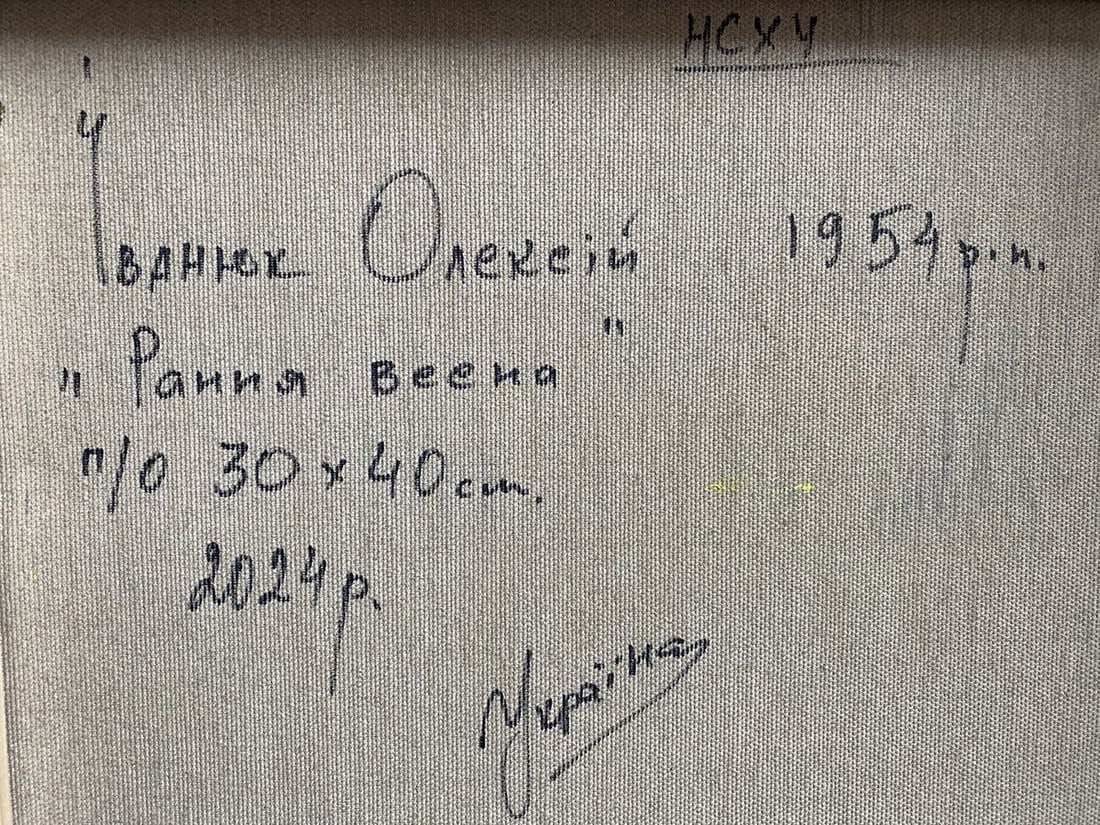 НСХУ
Іванюк Олексій 1954 р.н.
„Рання весна"
п/о 30 х 40 см.
2024 р.
Україна